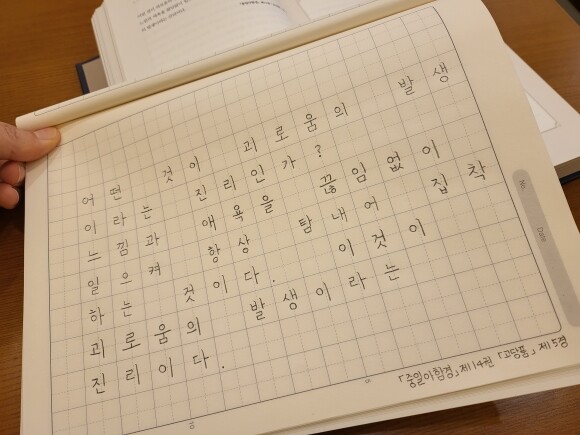 어떤 것이 괴로움의 발생
이라는 진리인가?
느낌과 애욕을 끊임없이
일으켜 항상 탐내어 집착
하는 것이다. 이것이
괴로움의 발생이라는
진리이다.
「증일아함경」제14권 「고당품」제5경
No.
Date